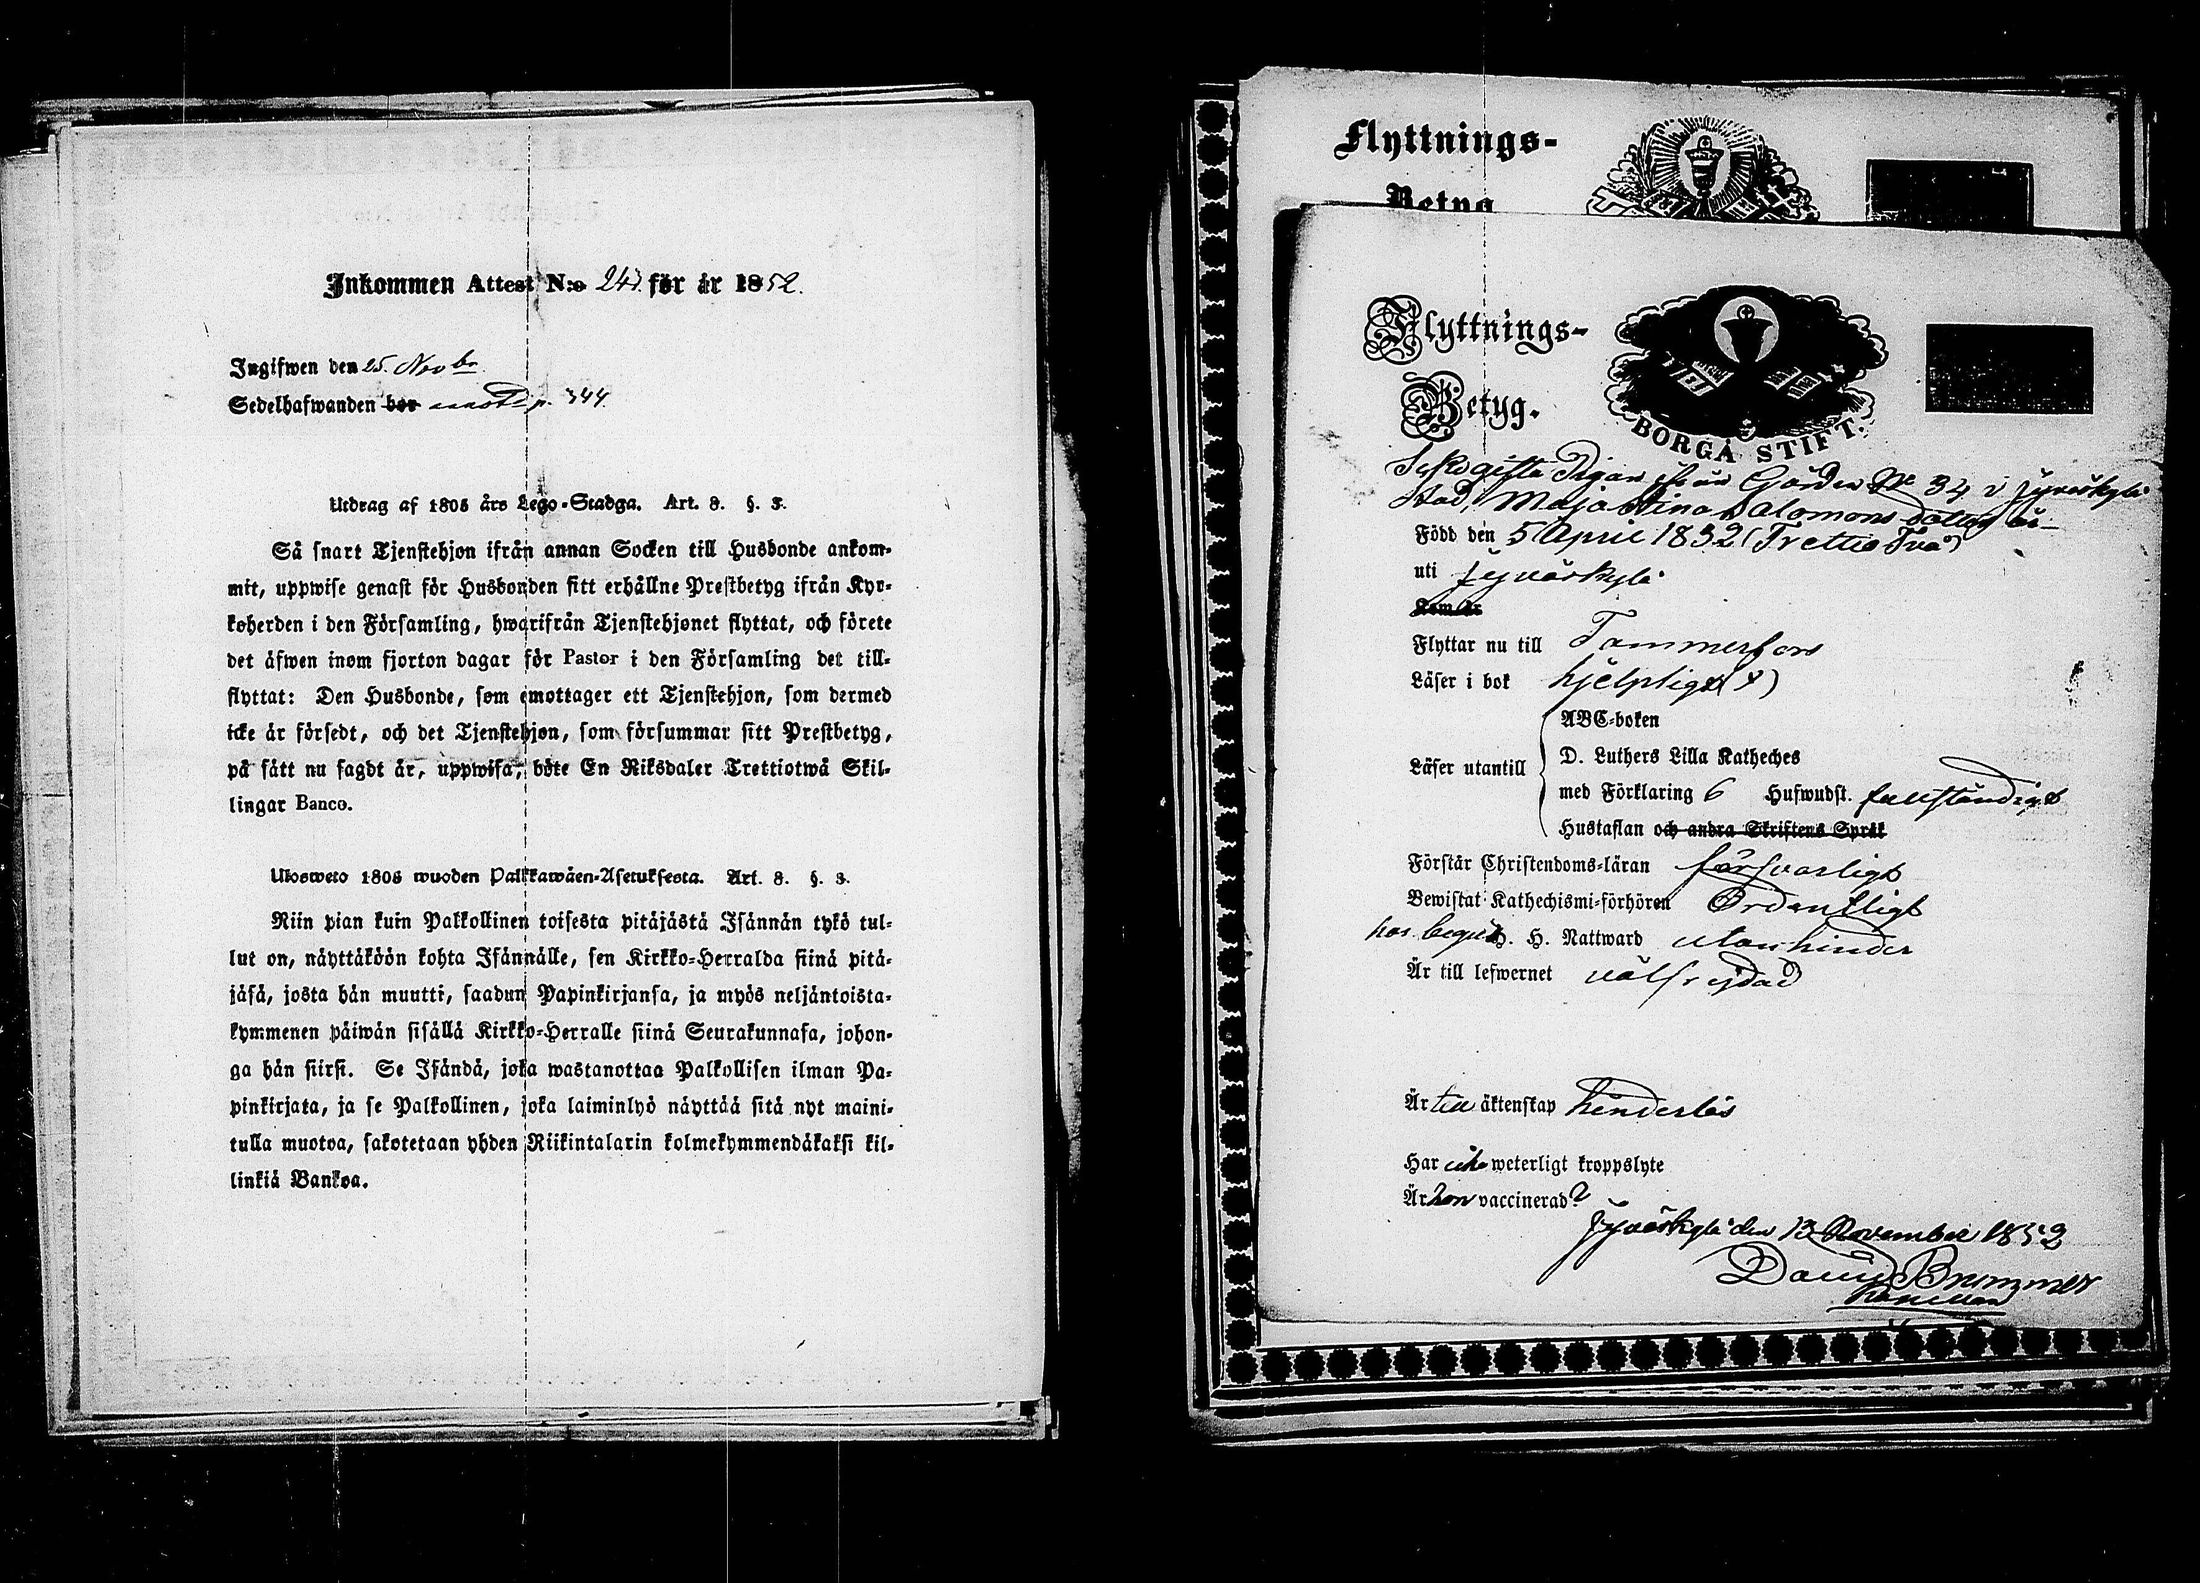 Inkommen Attest N:o 243. för år 1852.
Ingifwen den 25. Novbr
Sedelhafwanden bor p. 344
Utdrag af 1805 års Lego-Stadga. Art. 8. §. 3.
Så snart Tjenstehjon ifrån annan Socken till Husbonde ankom-
mit, uppwise genast för Husbonden sitt erhållne Prestbetyg ifrån Kyr-
koherden i den Församling, hwarifrån Tjenstehjonet flyttat, och förete
det äfwen inom fjorton dagar för Pastor i den Församling det till-
flyttat: Den Husbonde, som emottager ett Tjenstehjon, som dermed
icke är försedt, och det Tjenstehjon, som försummar sitt Prestbetyg,
på sätt nu sagdt är, uppwisa, böte En Riksdaler Trettiotwå Skil-
lingar Banco.
Ulosweto 1805 wuoden Palkkawäen-Asetuksesta. Art. 8. §. 3.
Niin pian kuin Palkollinen toisesta pitäjästä Isännän tykö tul-
lut on, näyttäköön kohta Isännälle, sen Kirkko-Herralda siinä pitä-
jäsä, josta hän muutti, saadun Papinkirjansa, ja myös neljäntoista-
kymmenen päiwän sisällä Kirkko-Herralle siinä Seurakunnasa, johon-
ga hän siirsi. Se Isändä, joka wastanottaa Palkollisen ilman Pa-
pinkirjata, ja se Palkollinen, joka laiminlyö näyttää sitä nyt maini-
tulla muotoa, sakotetaan yhden Riikintalarin kolmekymmendäkaksi kil-
linkiä Bankoa.
Flyttnings-
Betyg
Flyttnings-
Betyg.
BORGÅ STIFT.
ogifta Pigan ifrån Gården No 34 i Jyväskylä
Stad, Maja Stina Salomons dotter är
Född den 5 April 1832 (Trettio Två)
uti Jyväskylä
Kom år
Flyttar nu till Tammerfors
Läser i bok hjelpligt
Läser utantill
ABC-boken
D. Luthers Lilla Katheches
med Förklaring 6 Hufwudst. fullständigt
Hustaflan och andra Skriftens Språk
Förstår Christendoms-läran försvarligt
Bewistat Kathechismi-förhören Ordentligt
har begått H. H. Nattward utan hinder
Är till lefwernet välfrejdad
Är till äktenskap hinderlös
Har icke weterligt kroppslyte
Är hon vaccinerad?
Jyväskylä den 13 November 1852
David Brummer